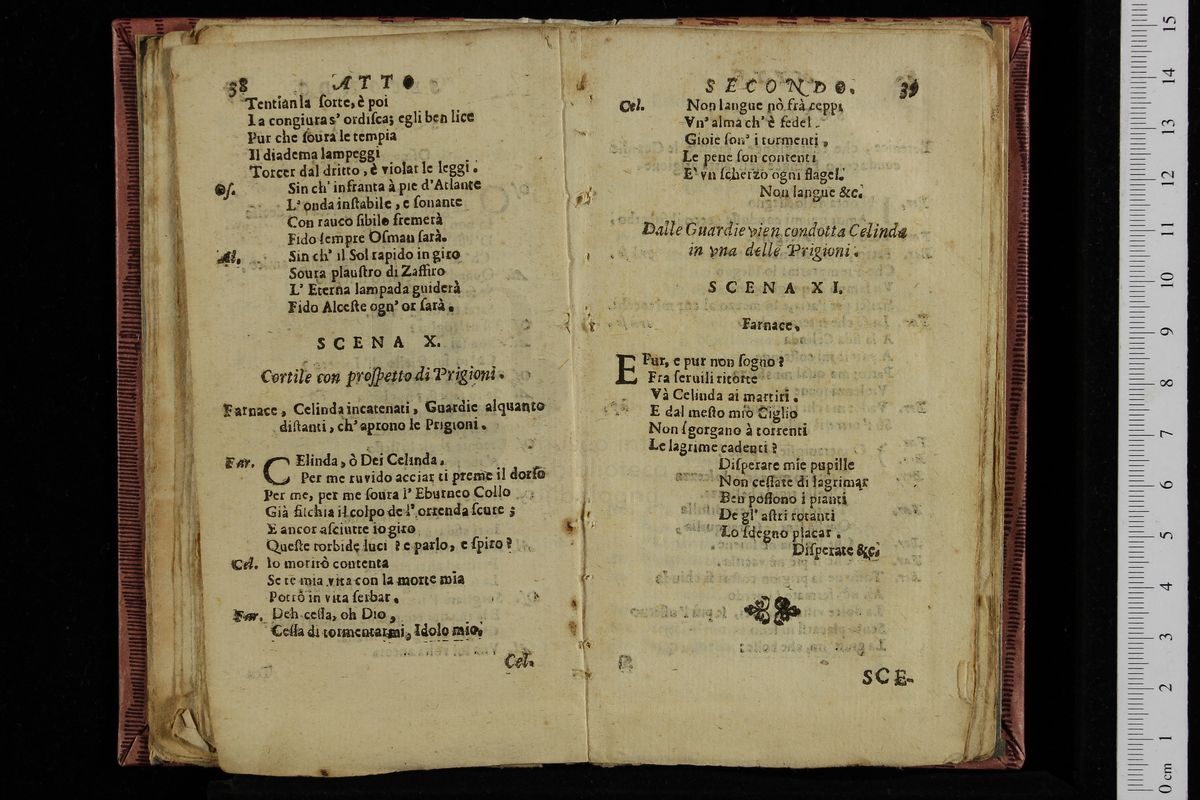 38 ATTO
Tentian la ſorte, è poi
La congiura s' ordiſca; egli ben lice
Pur che ſoura le tempia
Il diadema lampeggi
Torcer dal dritto, è violar le leggi.
Oſ. Sin ch' infranta à piè d'Atlante
L' onda inſtabile, e ſonante
Con rauco ſibilo fremerà
Fido ſempre Oſman ſarà.
Al. Sin ch' il Sol rapido in giro
Soura plauſtro di Zaffiro
L' Eterna lampada guiderà
Fido Alceſte ogn' or ſarà.
SCENA X.
Cortile con proſpetto di Prigioni.
Farnace, Celinda incatenati, Guardie alquanto
diſtanti, ch' aprono le Prigioni.
Far. CElinda, ò Dei Celinda.
Per me ruvido acciar ti preme il dorſo
Per me, per me ſoura l' Eburneo Collo
Già fiſchia il colpo de l' orrenda ſcure;
E ancor aſciutte io giro
Queſte torbide luci? e parlo, e ſpiro?
Cel. Io morirò contenta
Se tè mia vita con la morte mia
Potrò in vita ſerbar.
Far. Deh ceſſa, oh Dio,
Ceſſa di tormentarmi, Idolo mio.
Cel.
SECONDO. 39
Cel. Non langue nò frà ceppi
Vn' alma ch' è fedel.
Gioie ſon' i tormenti,
Le pene ſon contenti
E' vn ſcherzo ogni flagel.
Non langue &c.
Dalle Guardie vien condotta Celinda
in vna delle Prigioni.
SCENA XI.
Farnace.
E Pur, e pur non ſogno?
Fra ſeruili ritorte
Và Celinda ai martiri.
E dal meſto mio Ciglio
Non ſgorgano à torrenti
Le lagrime cadenti?
Diſperate mie pupille
Non ceſſate di lagrimar
Ben poſſono i pianti
De gl' aſtri rotanti
Lo ſdegno placar.
Diſperate &c.
SCE-
0 cm 1 2 3 4 5 6 7 8 9 10 11 12 13 14 15